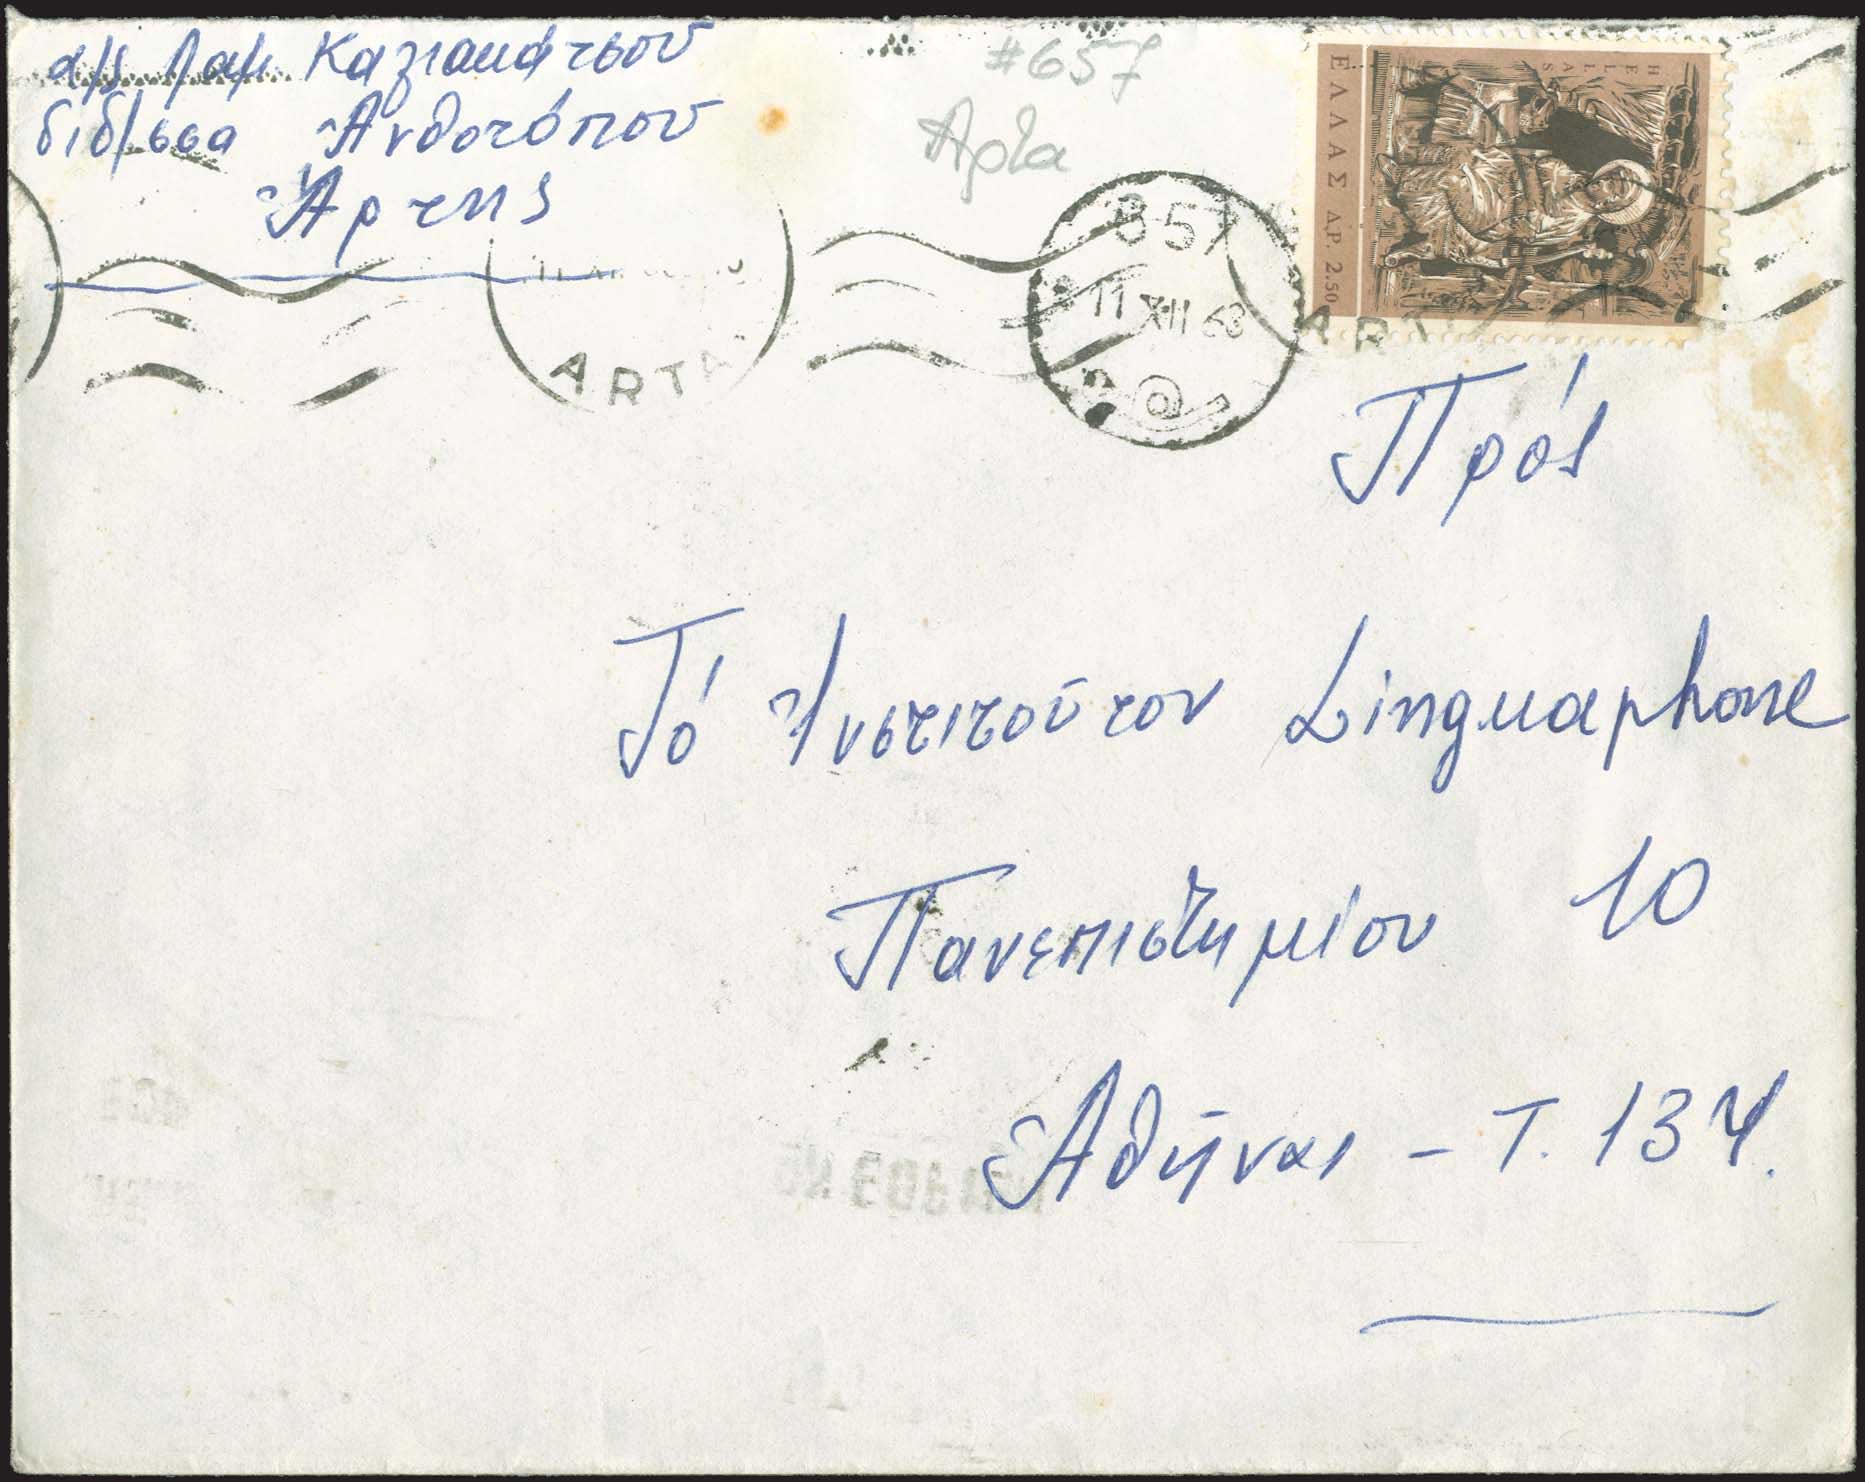 α/ς Λαμ Καζιακάτσου
διδ/σσα Ἀνθοτόπου
Ἄρτης
#657
Άρτα
ΕΛΛΑΣ ΔΡ. 2.50
HELLAS
857
11 XII 68
ARTA
ARTA
Πρός
Τό Ἰνστιτοῦτον Linguaphone
Πανεπιστημίου 10
Ἀθῆναι – Τ. 134.